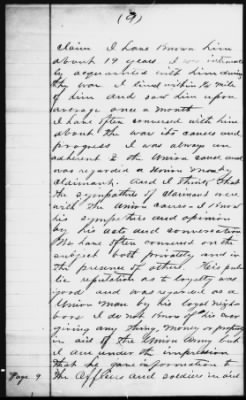 (9)
claim I have known him
about 19 years I was intimately
by acquainted with him during
the war I lived within the mile
of him and saw him upon
average once a month
I have often conversed with him
about the war its causes and
progress I was always an
adherent to the Union cause and
was regarded a Union man by
claimant. and I think that
the sympathies of claimant were
with the Union cause I know
his sympathies and opinion
by his acts and conversation
We have often conversed on the
subject both privately and in
the presence of others. His pub
lic reputation as to loyalty was
good and was regarded as a
Union man by his loyal neigh
bors I do not know of his ever
giving any thing, money or property
in aid of the Union Army but
I am under the impression
that he gave information to
Page 9 the Officers and soldiers in aid